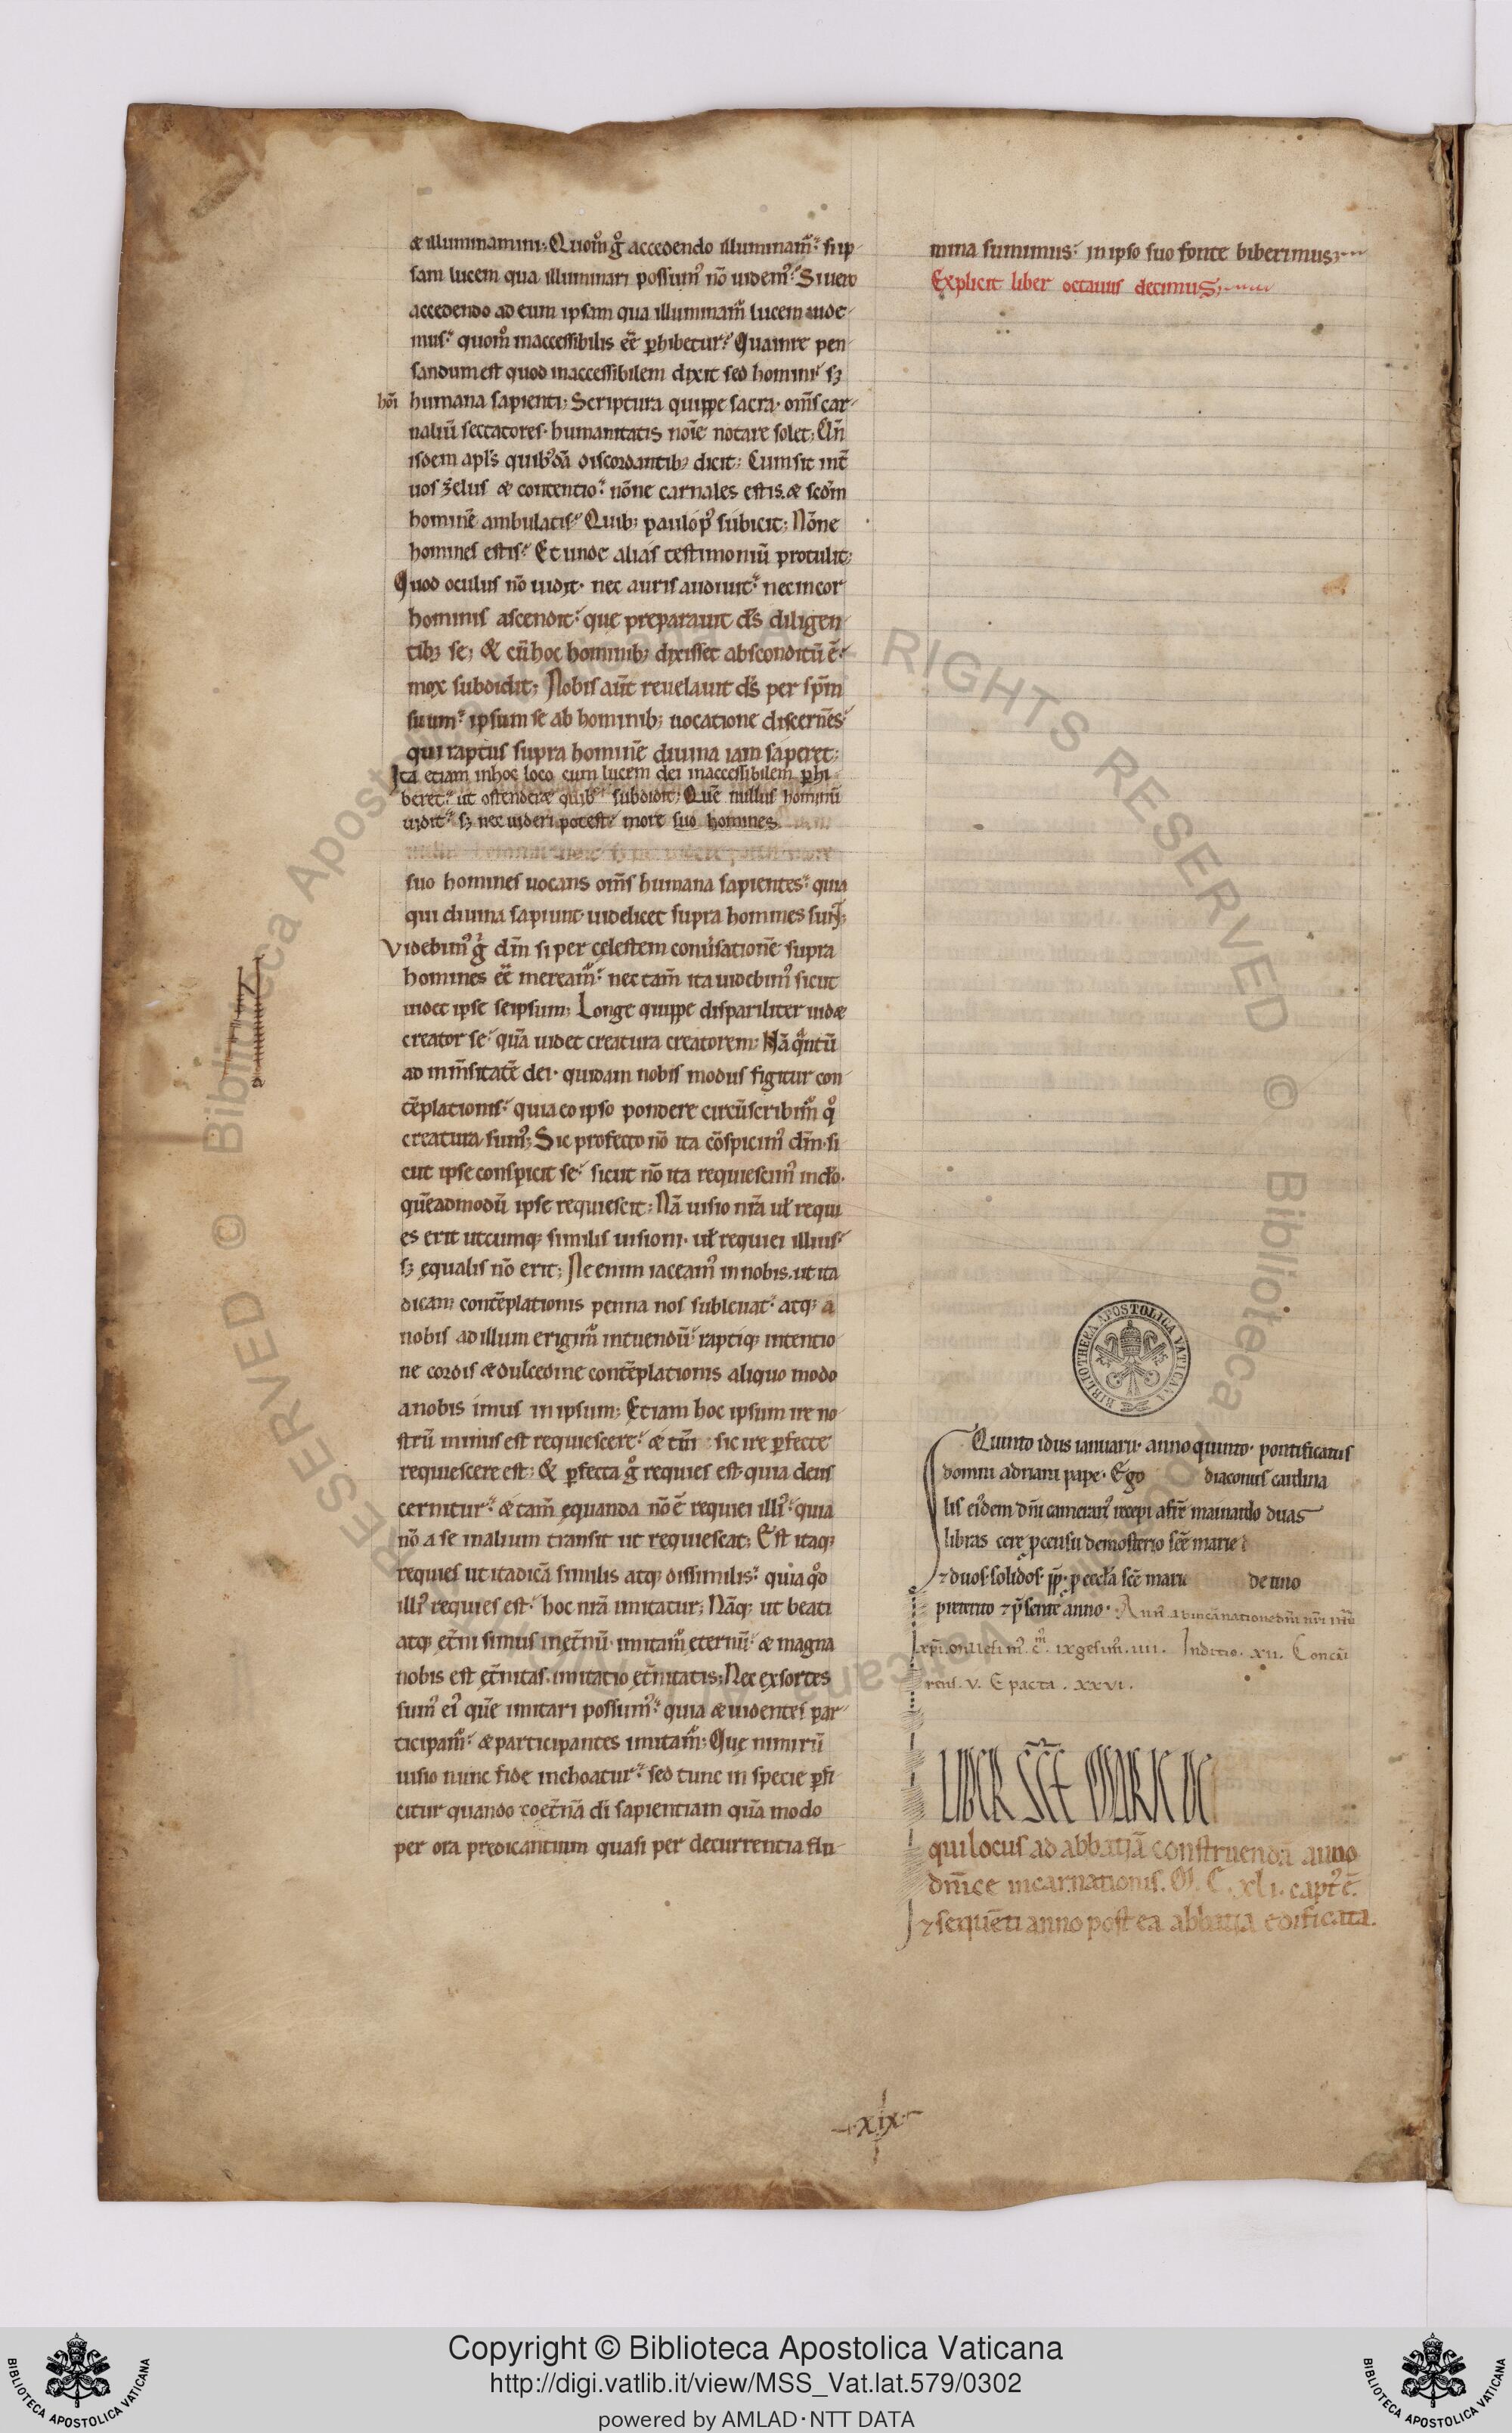 æ illuminamini; Quom̊ g̊ accedendo illuminam̃? si ip
sam lucem qua illuminari possum᾽ nõ uidem᾽? Si uero
accedendo ad eum ipsam qua illuminam̃ lucem uide
mus? quom̊ inaccessibilis eẽ ꝑhibetur? Quainre pen
sandum est quod inaccessibilem dixit sed homini? sꝫ
hõi humana sapienti; Scriptura quippe sacra. om̃s car
naliũ sectatores. humanitatis noĩe notare solet; Vñ
isdem apl̃s quib᾽dã discordantibꝫ dicit; Cum sit int̃
uos zelus æ contentio? nõne carnales estis. æ scđm
hominẽ ambulatis? Quibꝫ paulo p᾽ subicit; Nõne
homines estis? Et unde alias testimoniũ protulit;
Quod oculus nõ uidit. nec auris audiuit? nec in cor
hominis ascendit? que preparauit d̃s diligen
tibꝫ se; & cũ hoc hominibꝫ dixisset absconditũ ẽ?
mox subdidit; Nobis aũt reuelauit d̃s per sp̃m
suum? ipsum se ab hominibꝫ uocatione discernẽs?
qui raptus supra hominẽ diuina iam saperet;
Ita etiam in hoc loco cum lucem dei inaccessibilem ꝑhi
beret? ut ostenderæ quib᾽ subdidit; Quẽ nullus hominũ
uidit? sꝫ nec uideri potest? more suo homines
suo homines uocans om̃s humana sapientes? quia
qui diuina sapiunt. uidelicet supra homines sunt;
Videbim᾽ g̊ dm̃ si per cęlestem conuersationẽ supra
homines eẽ meream᾽? nec tam̃ ita uidebim᾽ sicut
uidet ipse seipsum; Longe quippe dispariliter uidæ
creator se? quã uidet creatura creatorem; Nã q̃ntũ
ad inm̃sitatẽ dei. quidam nobis modus figitur con
tẽplationis? quia eo ipso pondere circũscribim᾽ q̊
creatura sum᾽; Sic profecto nõ ita cõspicim᾽ dm̃. si
cut ipse conspicit se? sicut nõ ita requiescim᾽ in dõ.
quẽadmodũ ipse requiescit; Nã uisio nr̃a uł requi
es erit utcumqꝫ similis uisioni. uł requiei illius?
sꝫ ęqualis nõ erit; Ne enim iaceam᾽ in nobis. ut ita
dicam contẽplationis penna nos subleuat? atqꝫ a
nobis ad illum erigim᾽ intuendũ? raptiqꝫ intentio
ne cordis æ dulcedine contẽplationis aliquo modo
a nobis imus in ipsum; Et iam hoc ipsum ire no
strũ minus est requiescere? æ tm̃ sic ire ꝑfecte
requiescere est; & ꝑfecta g̊ requies est. quia deus
cernitur? æ tam̃ ęquanda nõ ẽ requiei illi᾽? quia
nõ a se in alium transit ut requiescat; Est itaqꝫ
requies ut ita dicã similis atqꝫ dissimilis? quia q̊d
illi᾽ requies est? hoc nr̃a imitatur; Nãqꝫ ut beati
atqꝫ et̃ni simus in et̃nũ. imitam᾽ eternũ? æ magna
nobis est et̃nitas. imitatio et̃nitatis; Nec exsortes
sum᾽ ei᾽ quẽ imitari possum᾽? quia æ uidentes par
ticipam᾽? æ participantes imitam᾽; Que nimirũ
uisio nunc fide inchoatur? sed tunc in specie ꝑfi
citur quando coet̃nã di sapientiam quã modo
per ora predicantium quasi per decurrentia flu
mina sumimus? in ipso suo fonte biberimus;
Explicit liber octauus decimus;
Quinto idus ianuarii. anno quinto. pontificatus
domni adriani pape. Ego diaconus cardina
lis ei᾽dem dm̃ camerari᾽ recepi a fr̃e mainardo duas
libras cerę ꝑ censu de mosterio sc̃e marie
⁊ duos. solidos. ꝑ ecclã sc̃e marie de uno
preterito ⁊ p̃sente anno. Anni ab incãnatione dm̃ nr̃i
xpi. millesim᾽. c̃. lxgesim᾽. iiii. Inditio. xii. Concur
rens. v. Epacta. xxvi.
LIBER SC̃E MARIE DE
qui locus ad abbatiã construendã anno
dnĩce incarnationis. M. C. xli. capt᾽ ẽ.
⁊ sequẽti anno post ea abbatia edificata.
xix
BIBLIOTHECA APOSTOLICA VATICANA
Copyright © Biblioteca Apostolica Vaticana
http://digi.vatlib.it/view/MSS_Vat.lat.579/0302
powered by AMLAD·NTT DATA